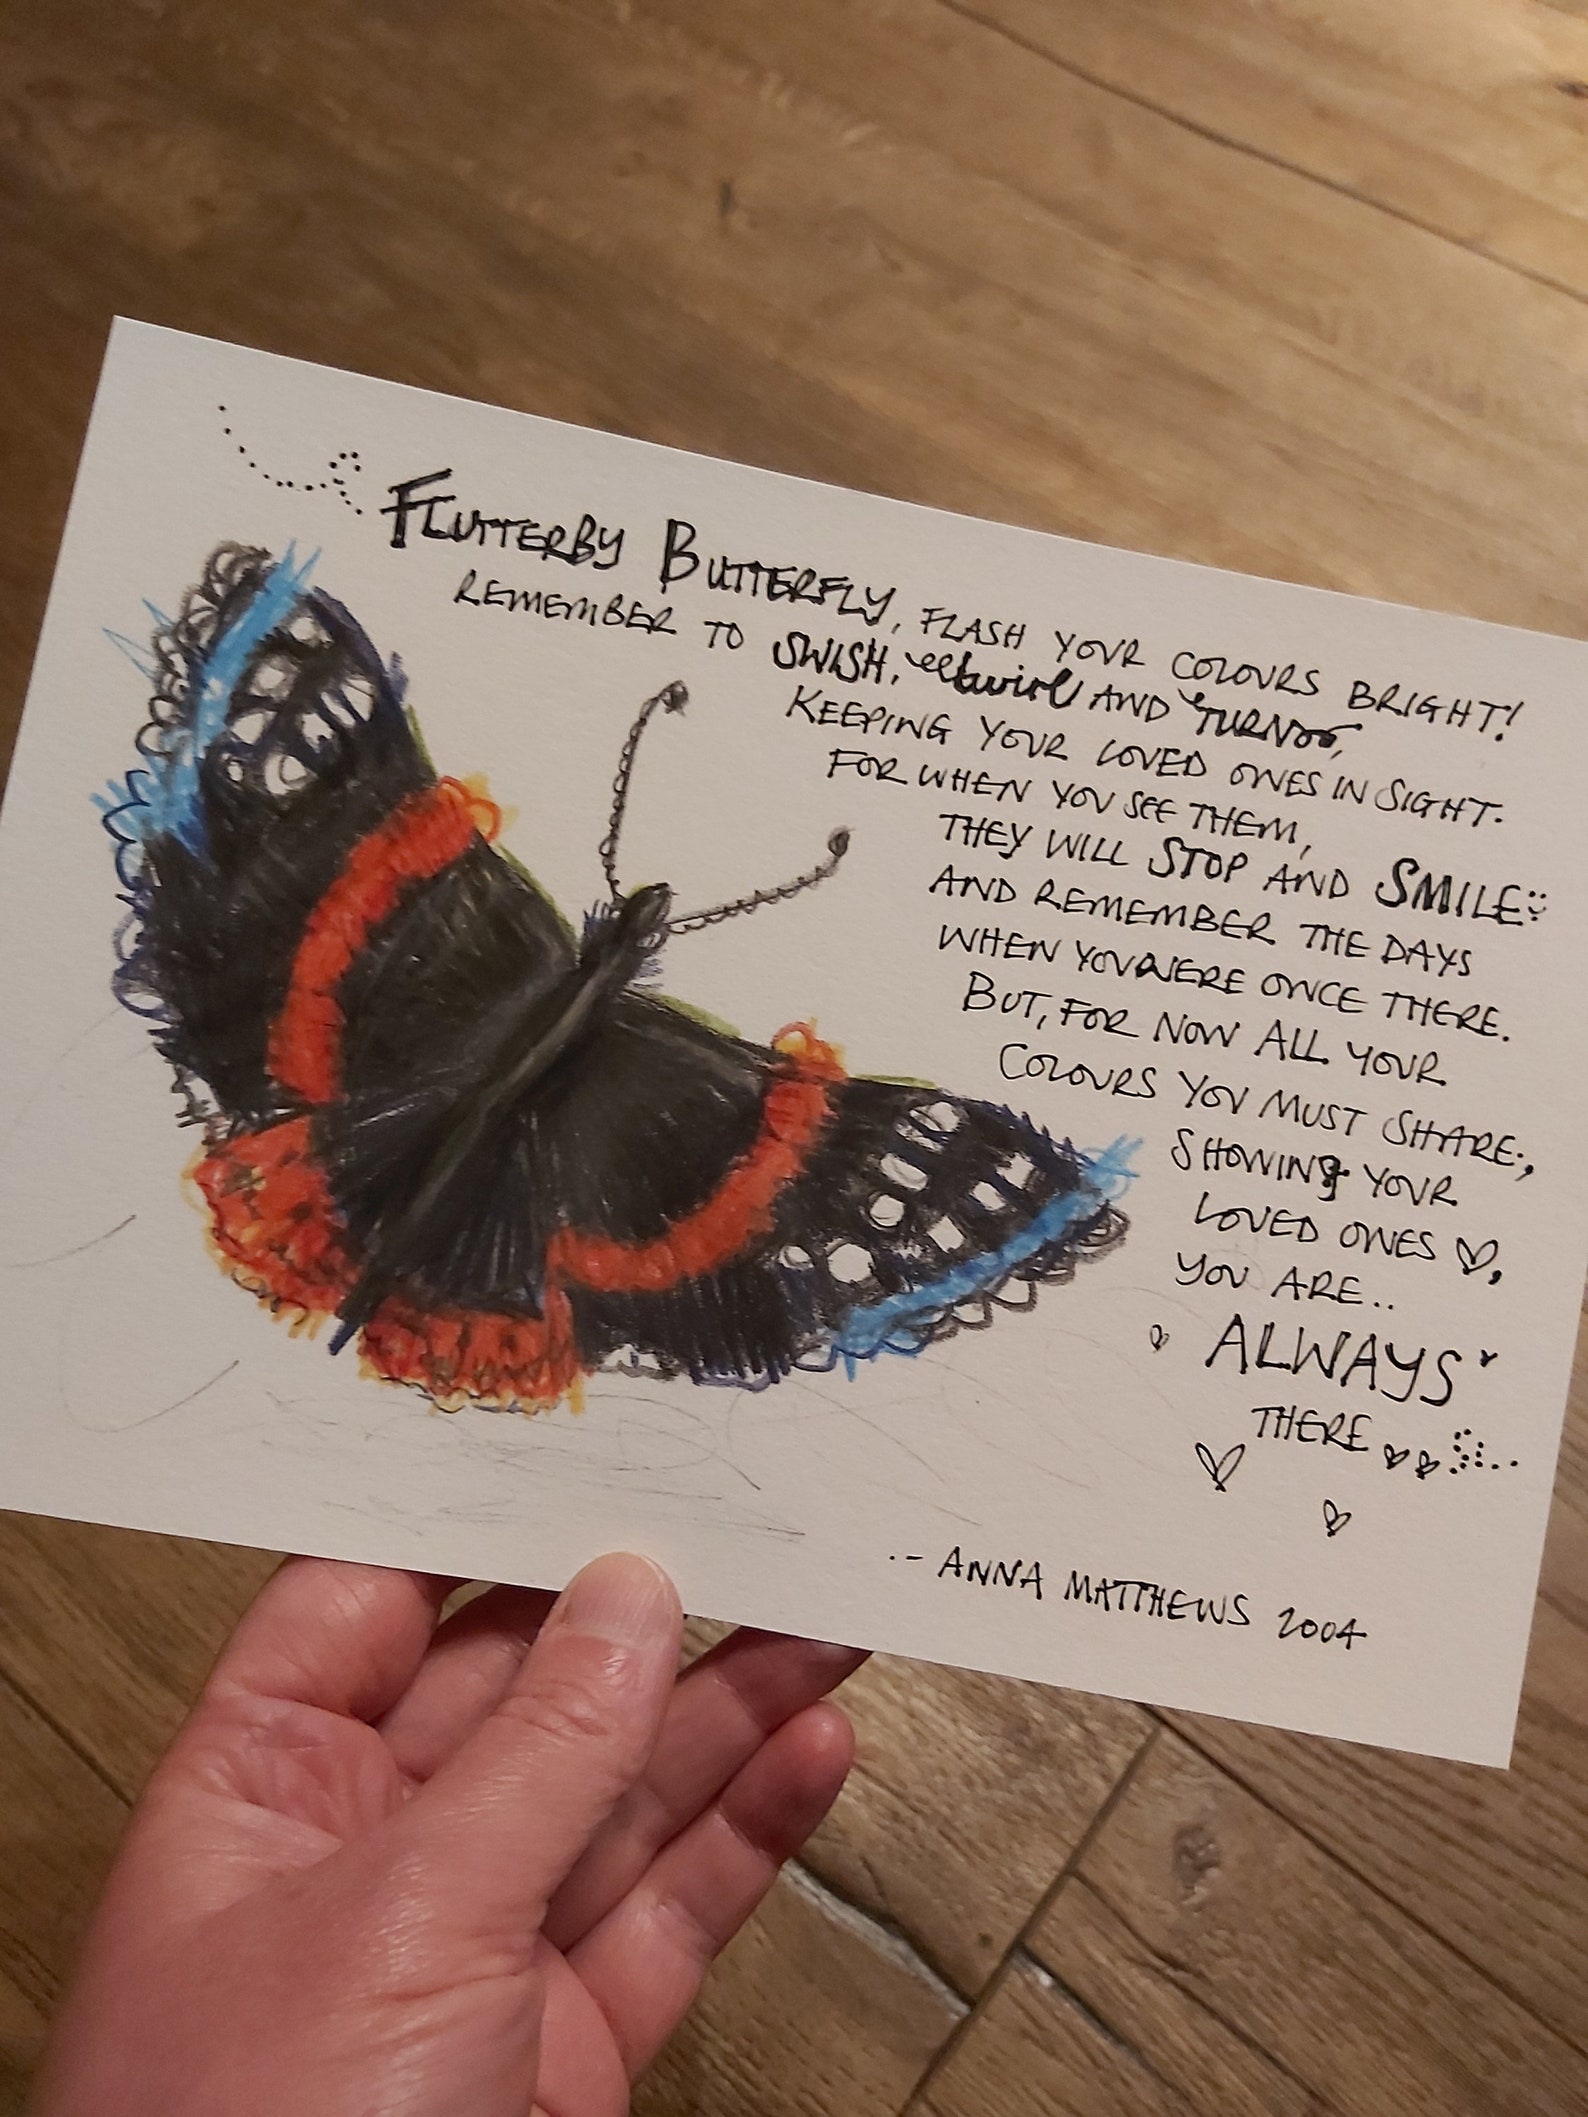 FLUTTERBY BUTTERFLY, FLASH YOUR COLOURS BRIGHT!
REMEMBER TO SWISH, twirl AND TURN,
KEEPING YOUR LOVED ONES IN SIGHT.
FOR WHEN YOU SEE THEM,
THEY WILL STOP AND SMILE
AND REMEMBER THE DAYS
WHEN YOU WERE ONCE THERE.
BUT, FOR NOW ALL YOUR
COLOURS YOU MUST SHARE;,
SHOWING YOUR
LOVED ONES ♡,
YOU ARE..
ALWAYS
THERE
.- ANNA MATTHEWS 2004